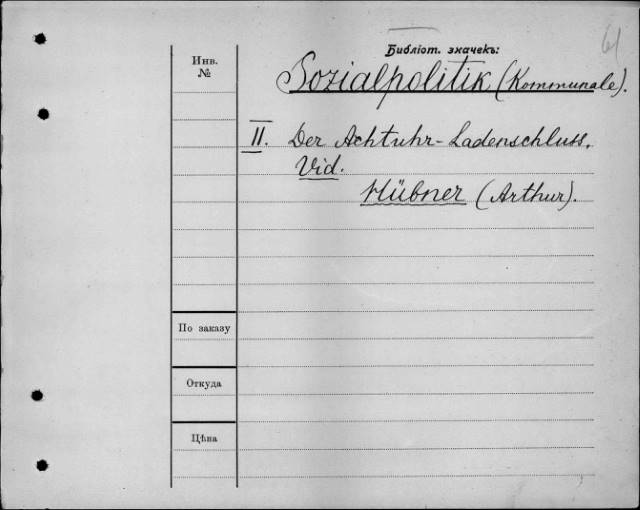 61
Библіот. значекъ:
Инв.
№
Sozialpolitik (Kommunale).
II. Der Achtuhr-Ladenschluss.
Vid.
Hübner (Arthur).
По заказу
Откуда
Цѣна